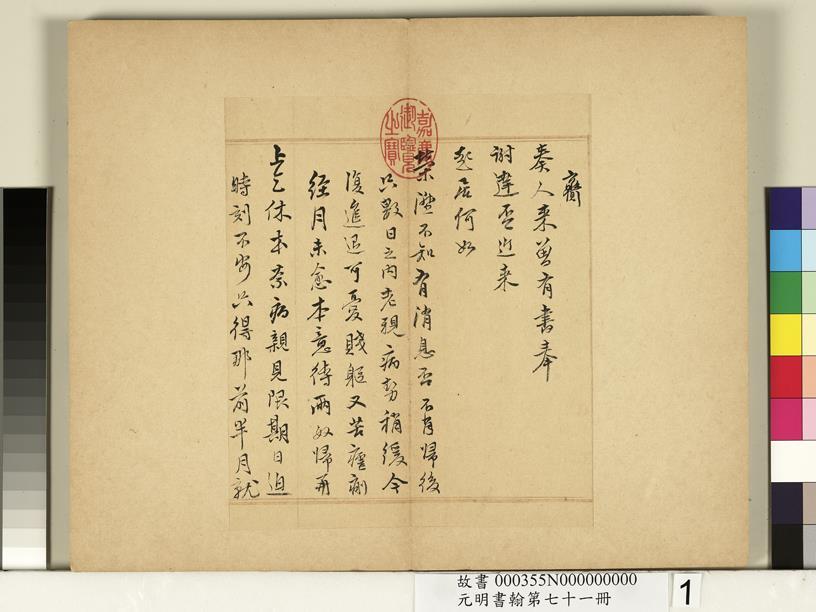 齎
奏人来曾有書奉
謝達否近来
起居何如
榮滯不知有消息否不肖歸後
只數日之内老親病勢稍緩今
復進退可憂賤軀又苦瘧痢
經月未愈本意待兩奴歸再
上乞休本奈病親見限期日迫
時刻不安只得那前半月就
嘉慶御覽之寶
故書 000355N000000000
元明書翰第七十一冊
1